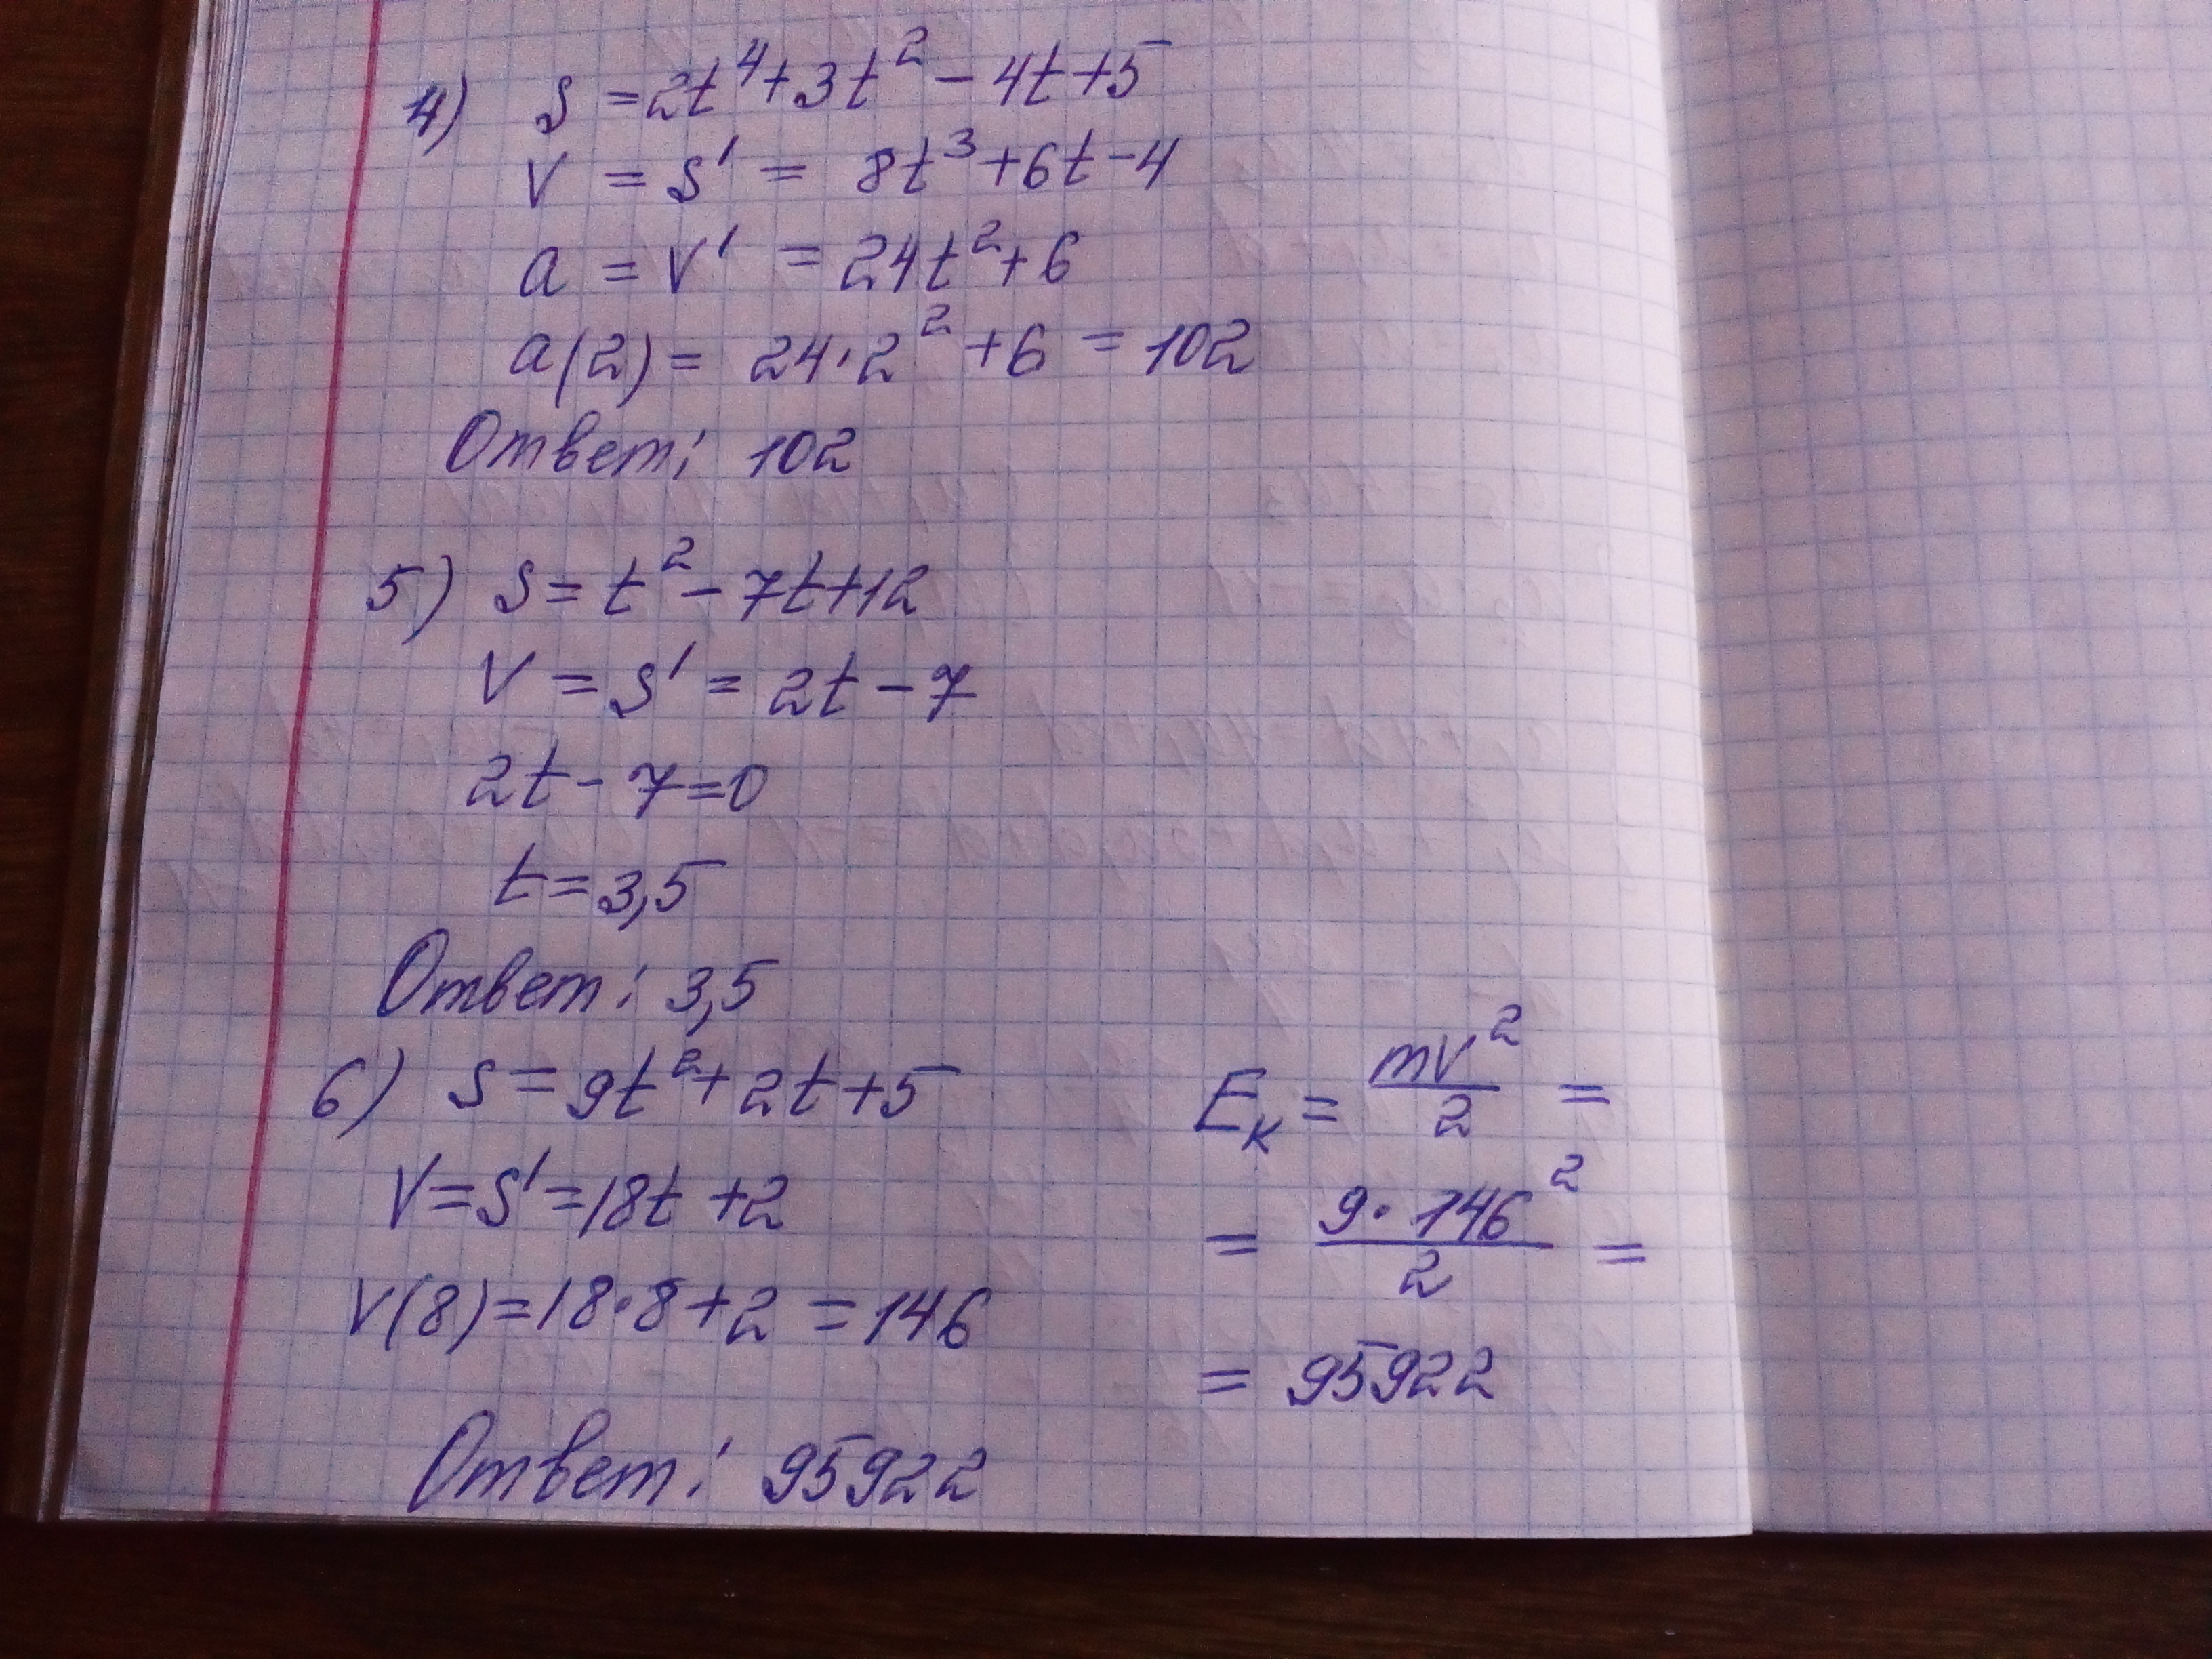 4) S = 2t⁴ + 3t² - 4t + 5
V = S' = 8t³ + 6t - 4
a = V' = 24t² + 6
a(2) = 24·2² + 6 = 102
Ответ: 102
5) S = t² - 7t + 12
V = S' = 2t - 7
2t - 7 = 0
t = 3,5
Ответ: 3,5
6) S = 9t² + 2t + 5
V = S' = 18t + 2
V(8) = 18·8 + 2 = 146
Eк = mv²/2 =
= 9·146²/2 =
= 95922
Ответ: 95922